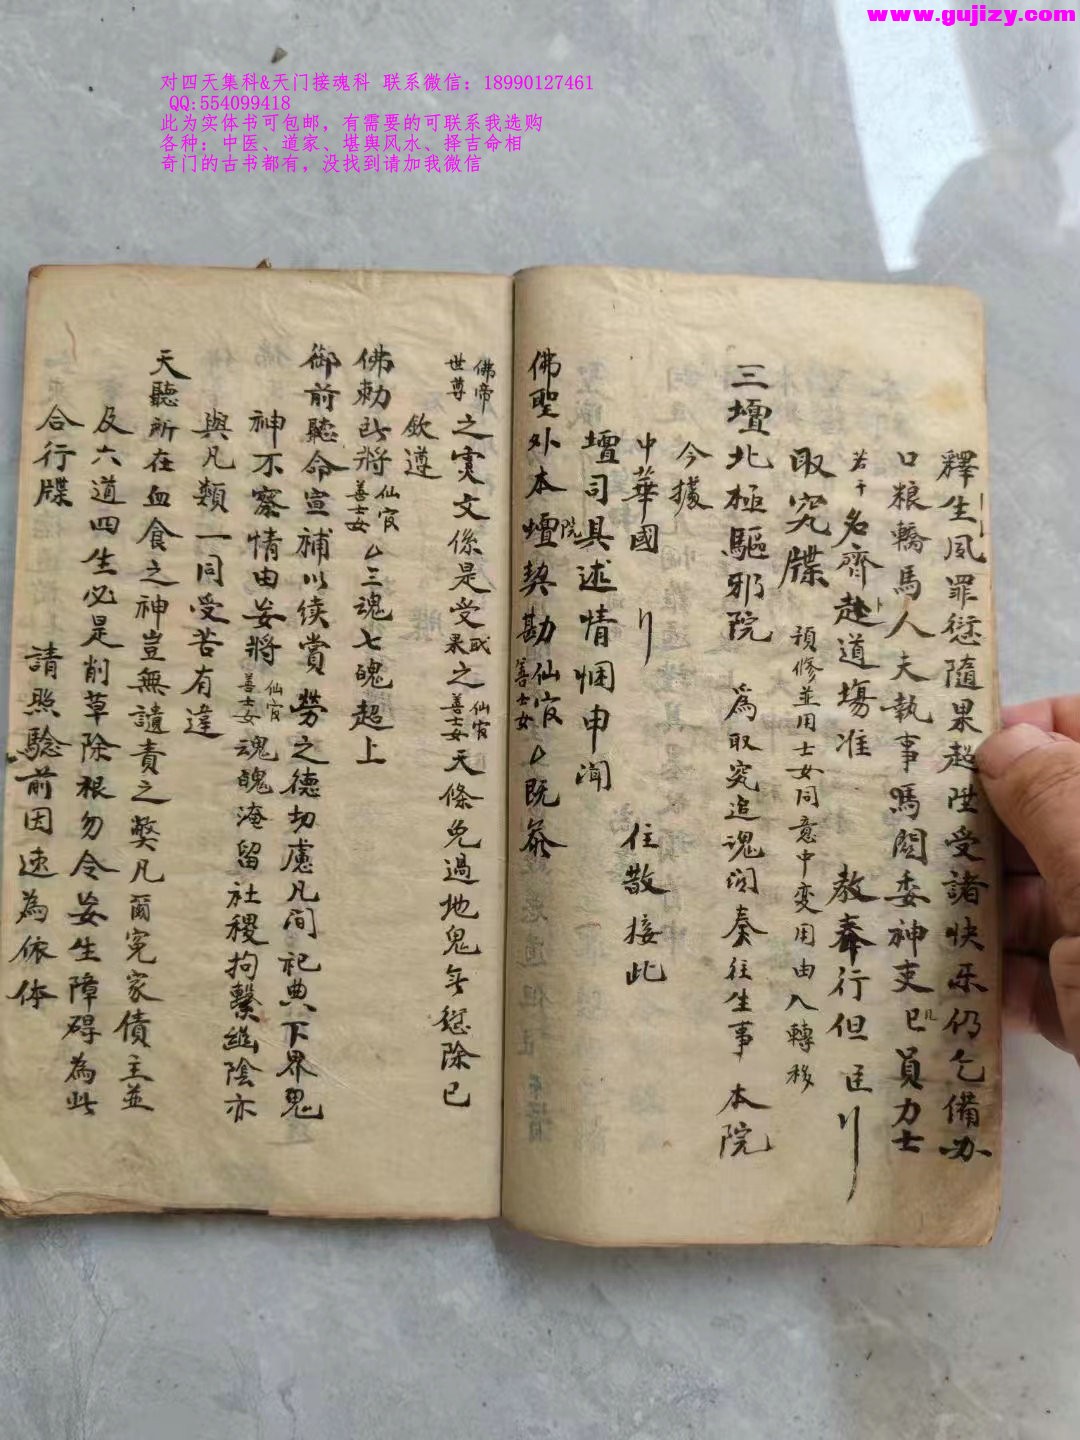 www.gujizy.com
对四天集科&天门接魂科 联系微信：18990127461
QQ:554099418
此为实体书可包邮，有需要的可联系我选购
各种：中医、道家、堪舆风水、择吉命相
奇门的古书都有，没找到请加我微信
釋生風罪愆隨果超陞受諸快乐仍乞備办
口粮轎馬人夫執事馬関委神吏已凡員力士
若干名齊赴道場准 教奉行但
取究牒 預修並用士女同意中变用由入轉移
三壇北極驅邪院 為取究追魂関奏往生事 本院
今據
中華國 住散接此
壇司具述情悃申聞
佛聖外本壇院契勘仙官善士女厶既叅
佛帝世尊之文係是受戒果之仙官善士女天條免過地鬼無愆除已
欽遵
佛勅此將仙官善士女厶三魂七魄超上
御前聽命宣補以续赏劳之德切慮凡间祀典下界鬼
神不察情由妄將仙官善士女魂魄淹留社稷拘繫幽陰亦
與凡類一同受苦有違
天聽所在血食之神豈無譴責之獘凡爾冤家債主並
及六道四生必是削草除根勿令妄生障碍為此
合行牒 請照騐前因速為依体